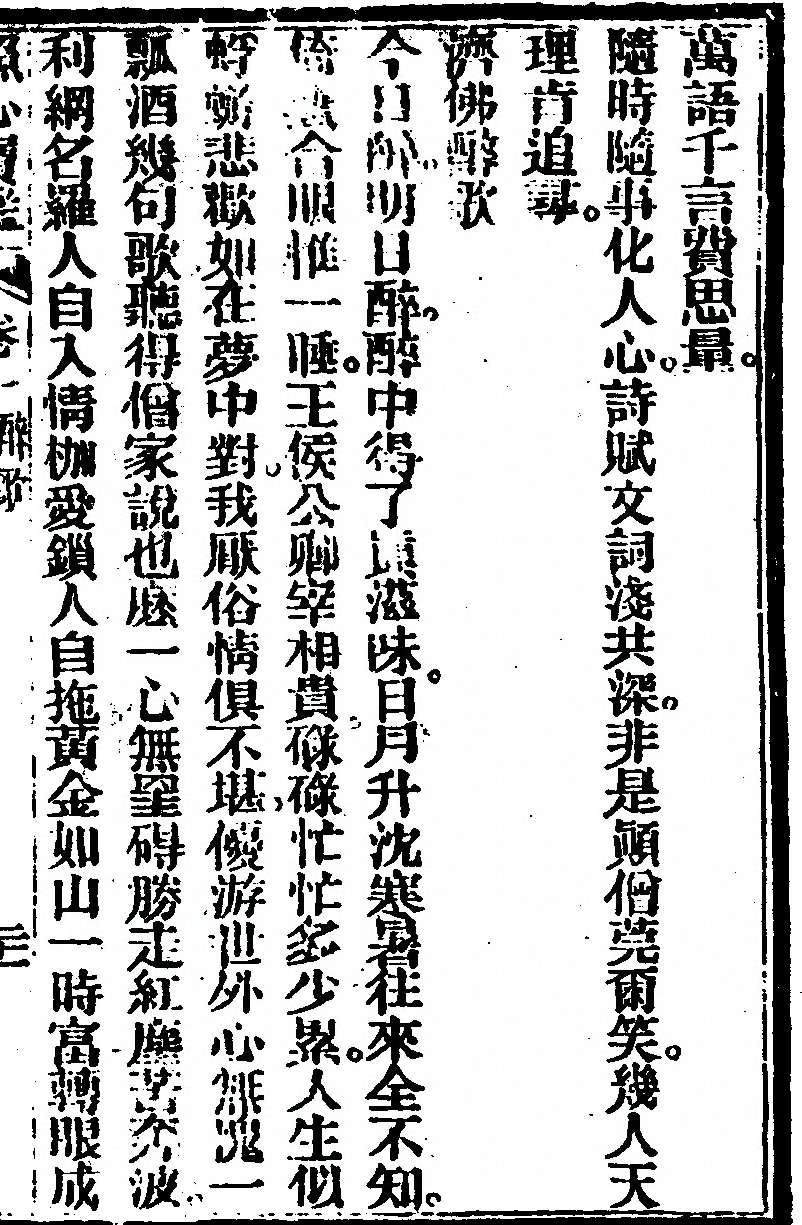 萬語千言費思量。
隨時隨事化人心。詩賦文詞淺共深。非是顚僧莞爾笑。幾人天
理肯追尋。
濟佛醉歌
今日醉。明日醉。醉中得了眞滋味。日月升沈寒暑往來全不知。
合眼惟一睡。王侯公卿宰相貴。碌碌忙忙多少累。人生似
蜉蝣悲歡如在夢中對。我厭俗情俱不堪。優游世外心無愧。一
瓢酒幾句歌聽得僧家說也麽一心無罣礙勝走紅塵苦奔波。
利網名羅人自入情枷愛鎖人自拖黃金如山一時富轉眼成
卷一 醉歌 三